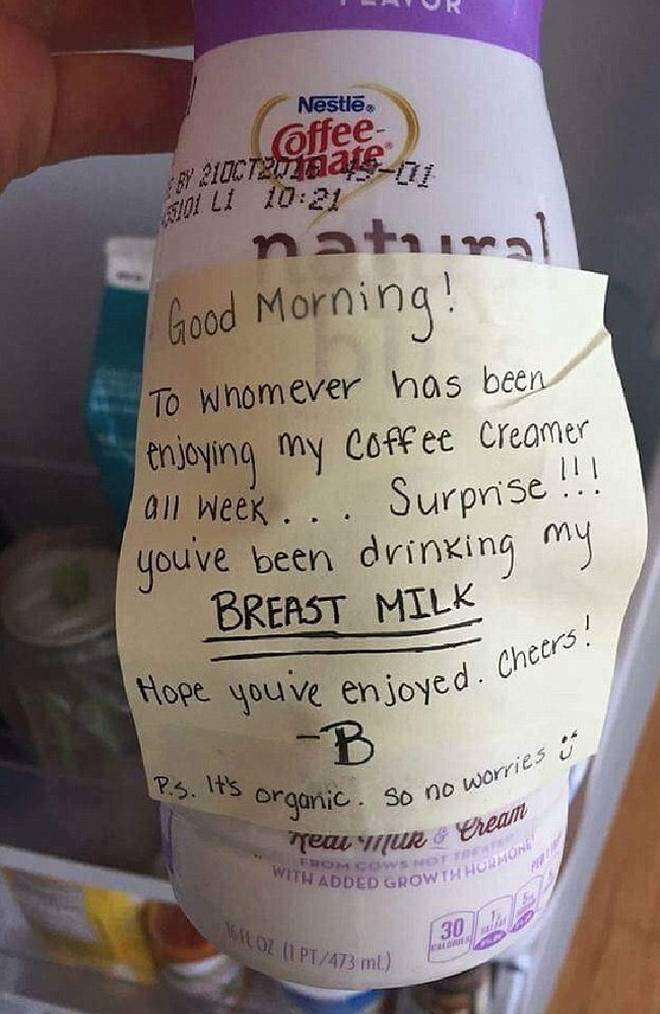 FLAVOR
Nestlé®
Coffee-
mate®
BY 21OCT2016 49-01
55101 L1 10:21
natural
Good Morning!
To whomever has been
enjoying my coffee creamer
all week... Surprise!!!
you've been drinking my
BREAST MILK
Hope you've enjoyed. Cheers!
-B
P.S. It's organic. So no worries :)
Real Milk & Cream
FROM COWS NOT TREATED
WITH ADDED GROWTH HORMONE
PER
16 FL OZ (1 PT/473 mL)
30
CALORIES